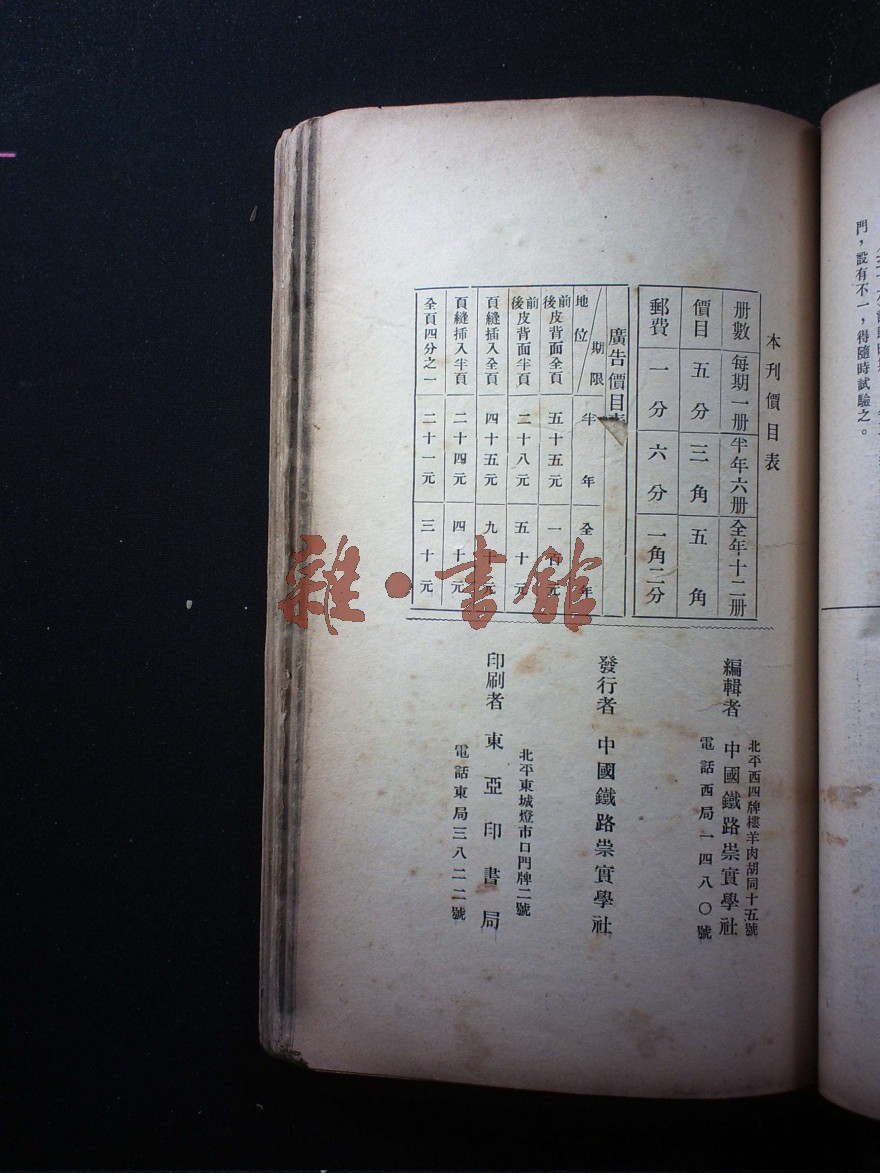 門，設有不一，得隨時試驗之。
本刊價目表
册數 每期一册 半年六册 全年十二册
價目 五分 三角 五角
郵費 一分 六分 一角二分
廣告價目表
地位 期限 半年 全年
前後皮背面全頁 五十五元 一百元
前後皮背面半頁 二十八元 五十元
頁縫插入全頁 四十五元 九十元
頁縫挿入半頁 二十四元 四十元
全頁四分之一 二十一元 三十元
北平西四牌樓羊肉胡同十五號
編輯者 中國鐵路崇實學社
電話西局一四八〇號
發行者 中國鐵路崇實學社
北平東城燈市口門牌二號
印刷者 東亞印書局
電話東局三八二二號
雜·書館